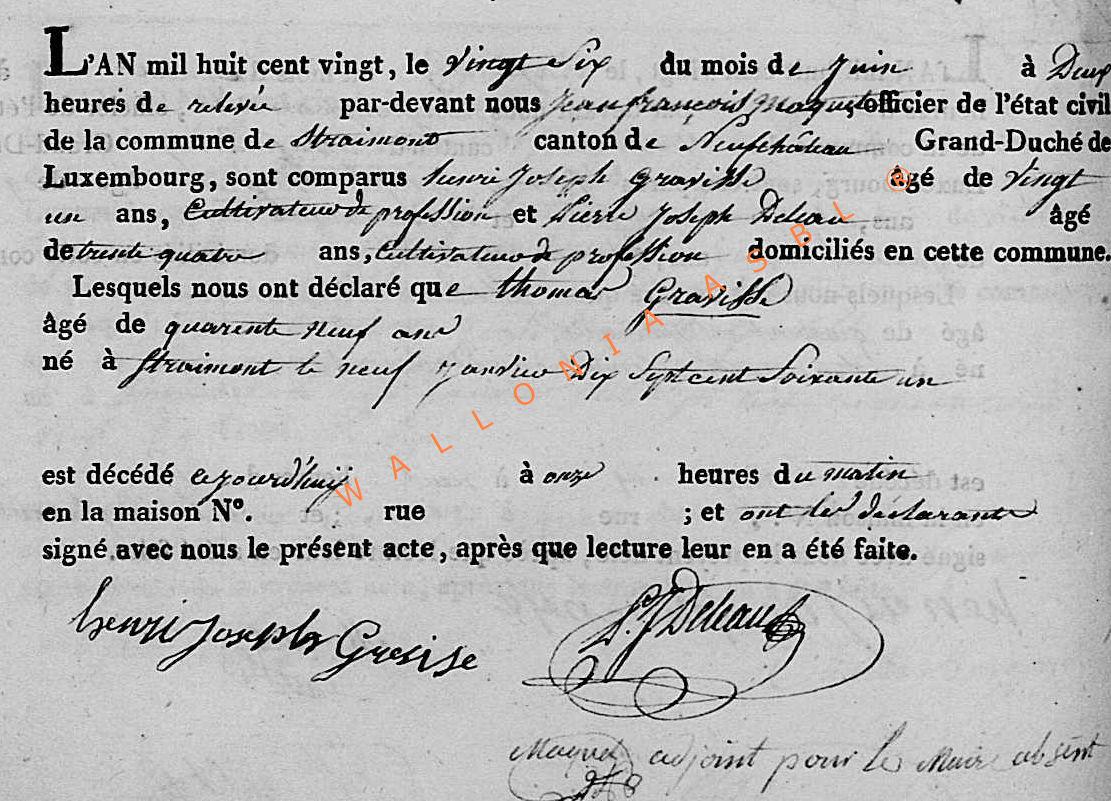 L'AN mil huit cent vingt, le vingt Six du mois de Juin à Deux
heures de relevée par-devant nous Jean françois Maquet officier de l'état civil
de la commune de Straimont canton de Neufchâteau Grand-Duché de
Luxembourg, sont comparus henri Joseph Gravisse âgé de vingt
un ans, Cultivateur de profession et Pierre Joseph Deleau âgé
de trente quatre ans, Cultivateur de profession domiciliés en cette commune.
Lesquels nous ont déclaré que thomas Gravisse
âgé de quarente neuf ans
né à Straimont le neuf Janvier Dix Sept cent Soixante un
est décédé cejourd'huij à onze heures du matin
en la maison N°. rue ; et ont les déclarants
signé avec nous le présent acte, après que lecture leur en a été faite.
henri Joseph Gresise P. J Deleau
Maquet adjoint pour le Maire absent
WALLONIA ASBL ©